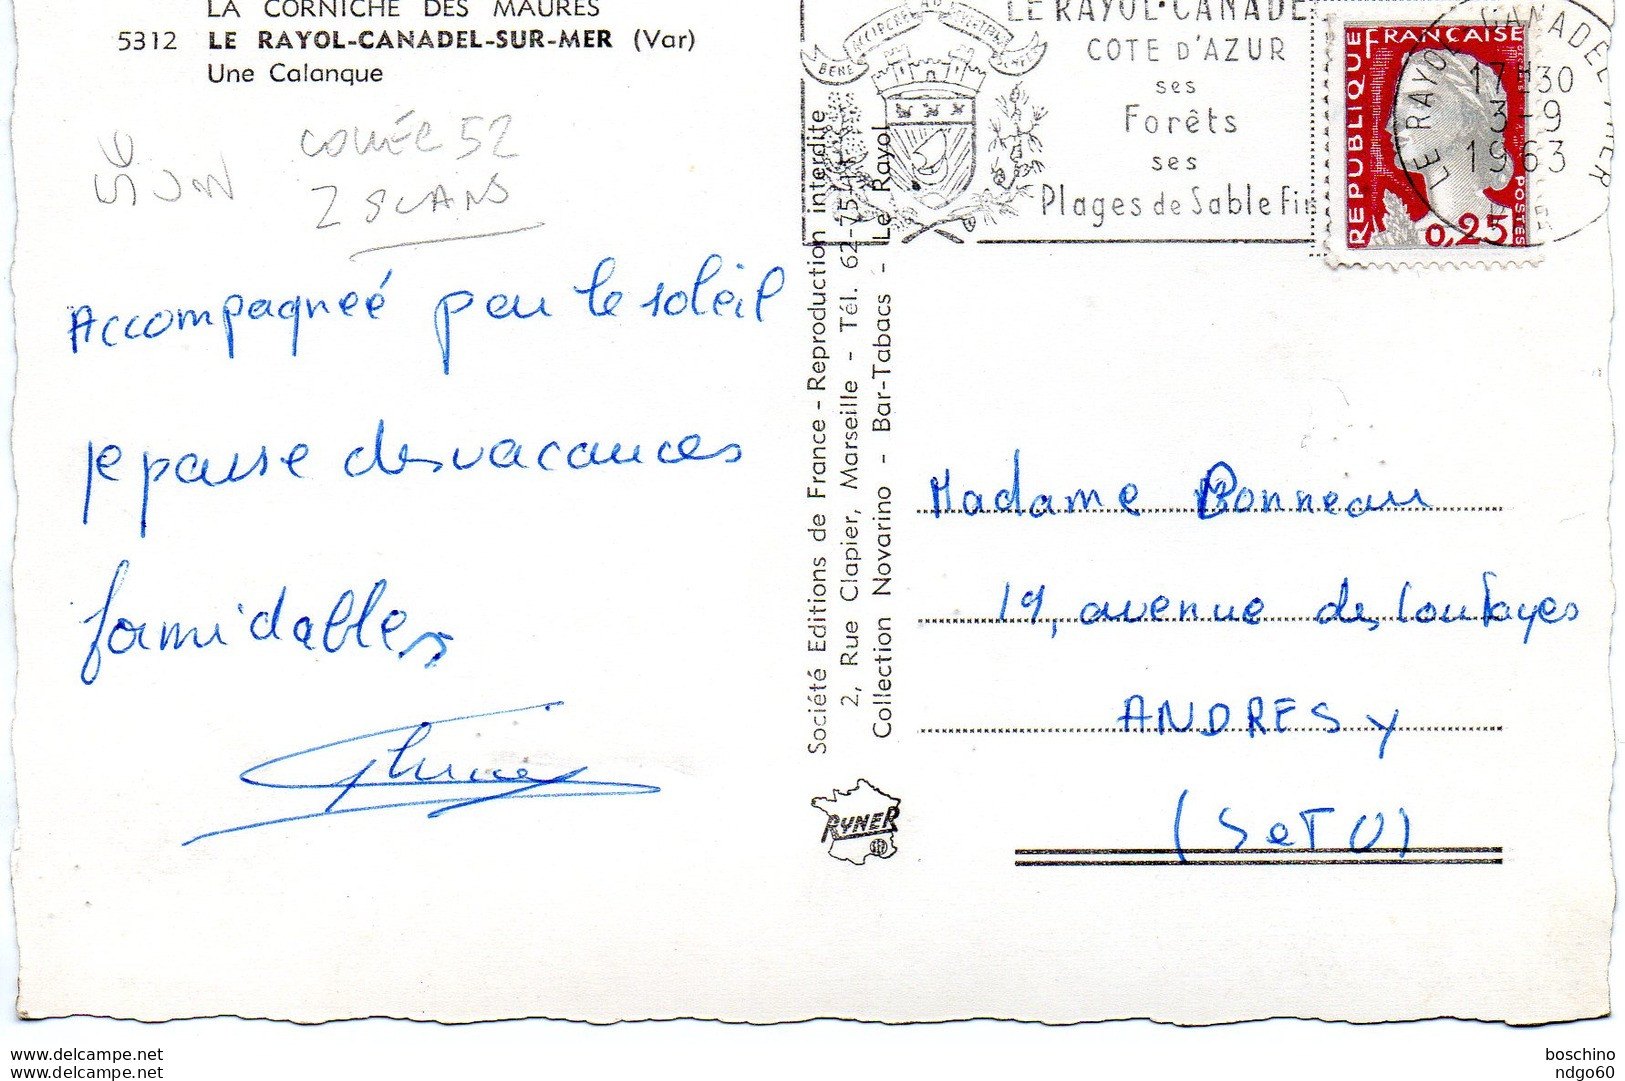 LA CORNICHE DES MAURES
5312 LE RAYOL-CANADEL-SUR-MER (Var)
Une Calanque
COLLÉE 52
2 SCANS
Accompagneé par le soleil
je passe des vacances
formidables
Société Editions de France - Reproduction interdite
2, Rue Clapier, Marseille - Tél. 62-75-41
Collection Novarino - Bar-Tabacs - Le Rayol
RYNER
LE RAYOL-CANADE
COTE D'AZUR
ses
Forêts
ses
Plages de Sable Fin
REPUBLIQUE
FRANÇAISE
POSTES
0,25
LE RAYOL CANADEL MER
17H30
3-9
1963
Madame Bonneau
19, avenue des coutayes
ANDRESY
(S et O)
www.delcampe.net
www.delcampe.net
boschino
ndgo60